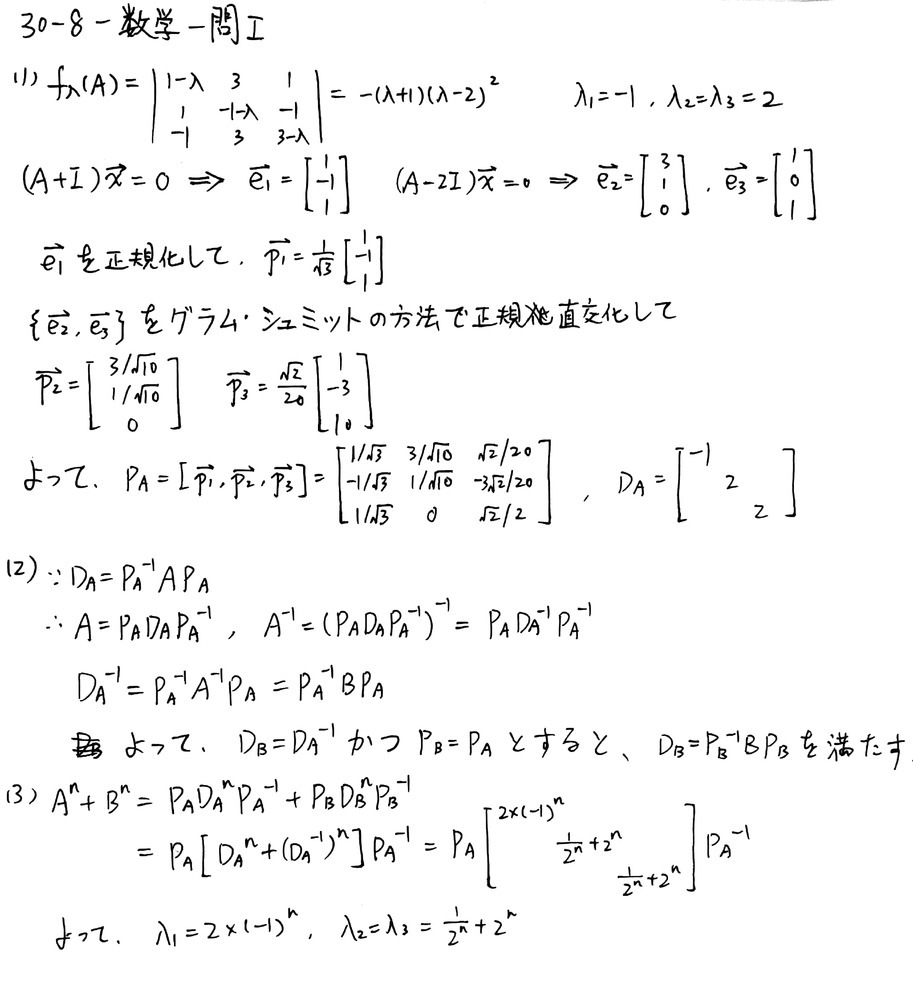 30-8-数学-問I
(1) fλ(A) = | 1-λ 3 1 ; 1 -1-λ -1 ; -1 3 3-λ | = -(λ+1)(λ-2)² λ₁=-1, λ₂=λ₃=2
(A+I)x⃗=0 ⇒ e⃗₁ = [1 ; -1 ; 1] (A-2I)x⃗=0 ⇒ e⃗₂=[3 ; 1 ; 0], e⃗₃=[1 ; 0 ; 1]
e⃗₁を正規化して、p⃗₁=1/√3 [1 ; -1 ; 1]
{e⃗₂, e⃗₃}をグラム・シュミットの方法で正規直交化して
p⃗₂=[3/√10 ; 1/√10 ; 0] p⃗₃=√2/20 [1 ; -3 ; 10]
よって、P_A=[p⃗₁, p⃗₂, p⃗₃]=[1/√3 3/√10 √2/20 ; -1/√3 1/√10 -3√2/20 ; 1/√3 0 √2/2], D_A=[-1 2 2]
(2) ∵ D_A=P_A⁻¹AP_A
∴ A=P_AD_AP_A⁻¹, A⁻¹=(P_AD_AP_A⁻¹)⁻¹= P_AD_A⁻¹P_A⁻¹
D_A⁻¹=P_A⁻¹A⁻¹P_A =P_A⁻¹BP_A
よって、D_B=D_A⁻¹ かつ P_B=P_A とすると、D_B=P_B⁻¹BP_Bを満たす.
(3) Aⁿ+Bⁿ= P_AD_AⁿP_A⁻¹+P_BD_BⁿP_B⁻¹
= P_A[D_Aⁿ+(D_A⁻¹)ⁿ]P_A⁻¹ = P_A[2×(-1)ⁿ 1/2ⁿ+2ⁿ 1/2ⁿ+2ⁿ]P_A⁻¹
よって、λ₁=2×(-1)ⁿ, λ₂=λ₃=1/2ⁿ+2ⁿ